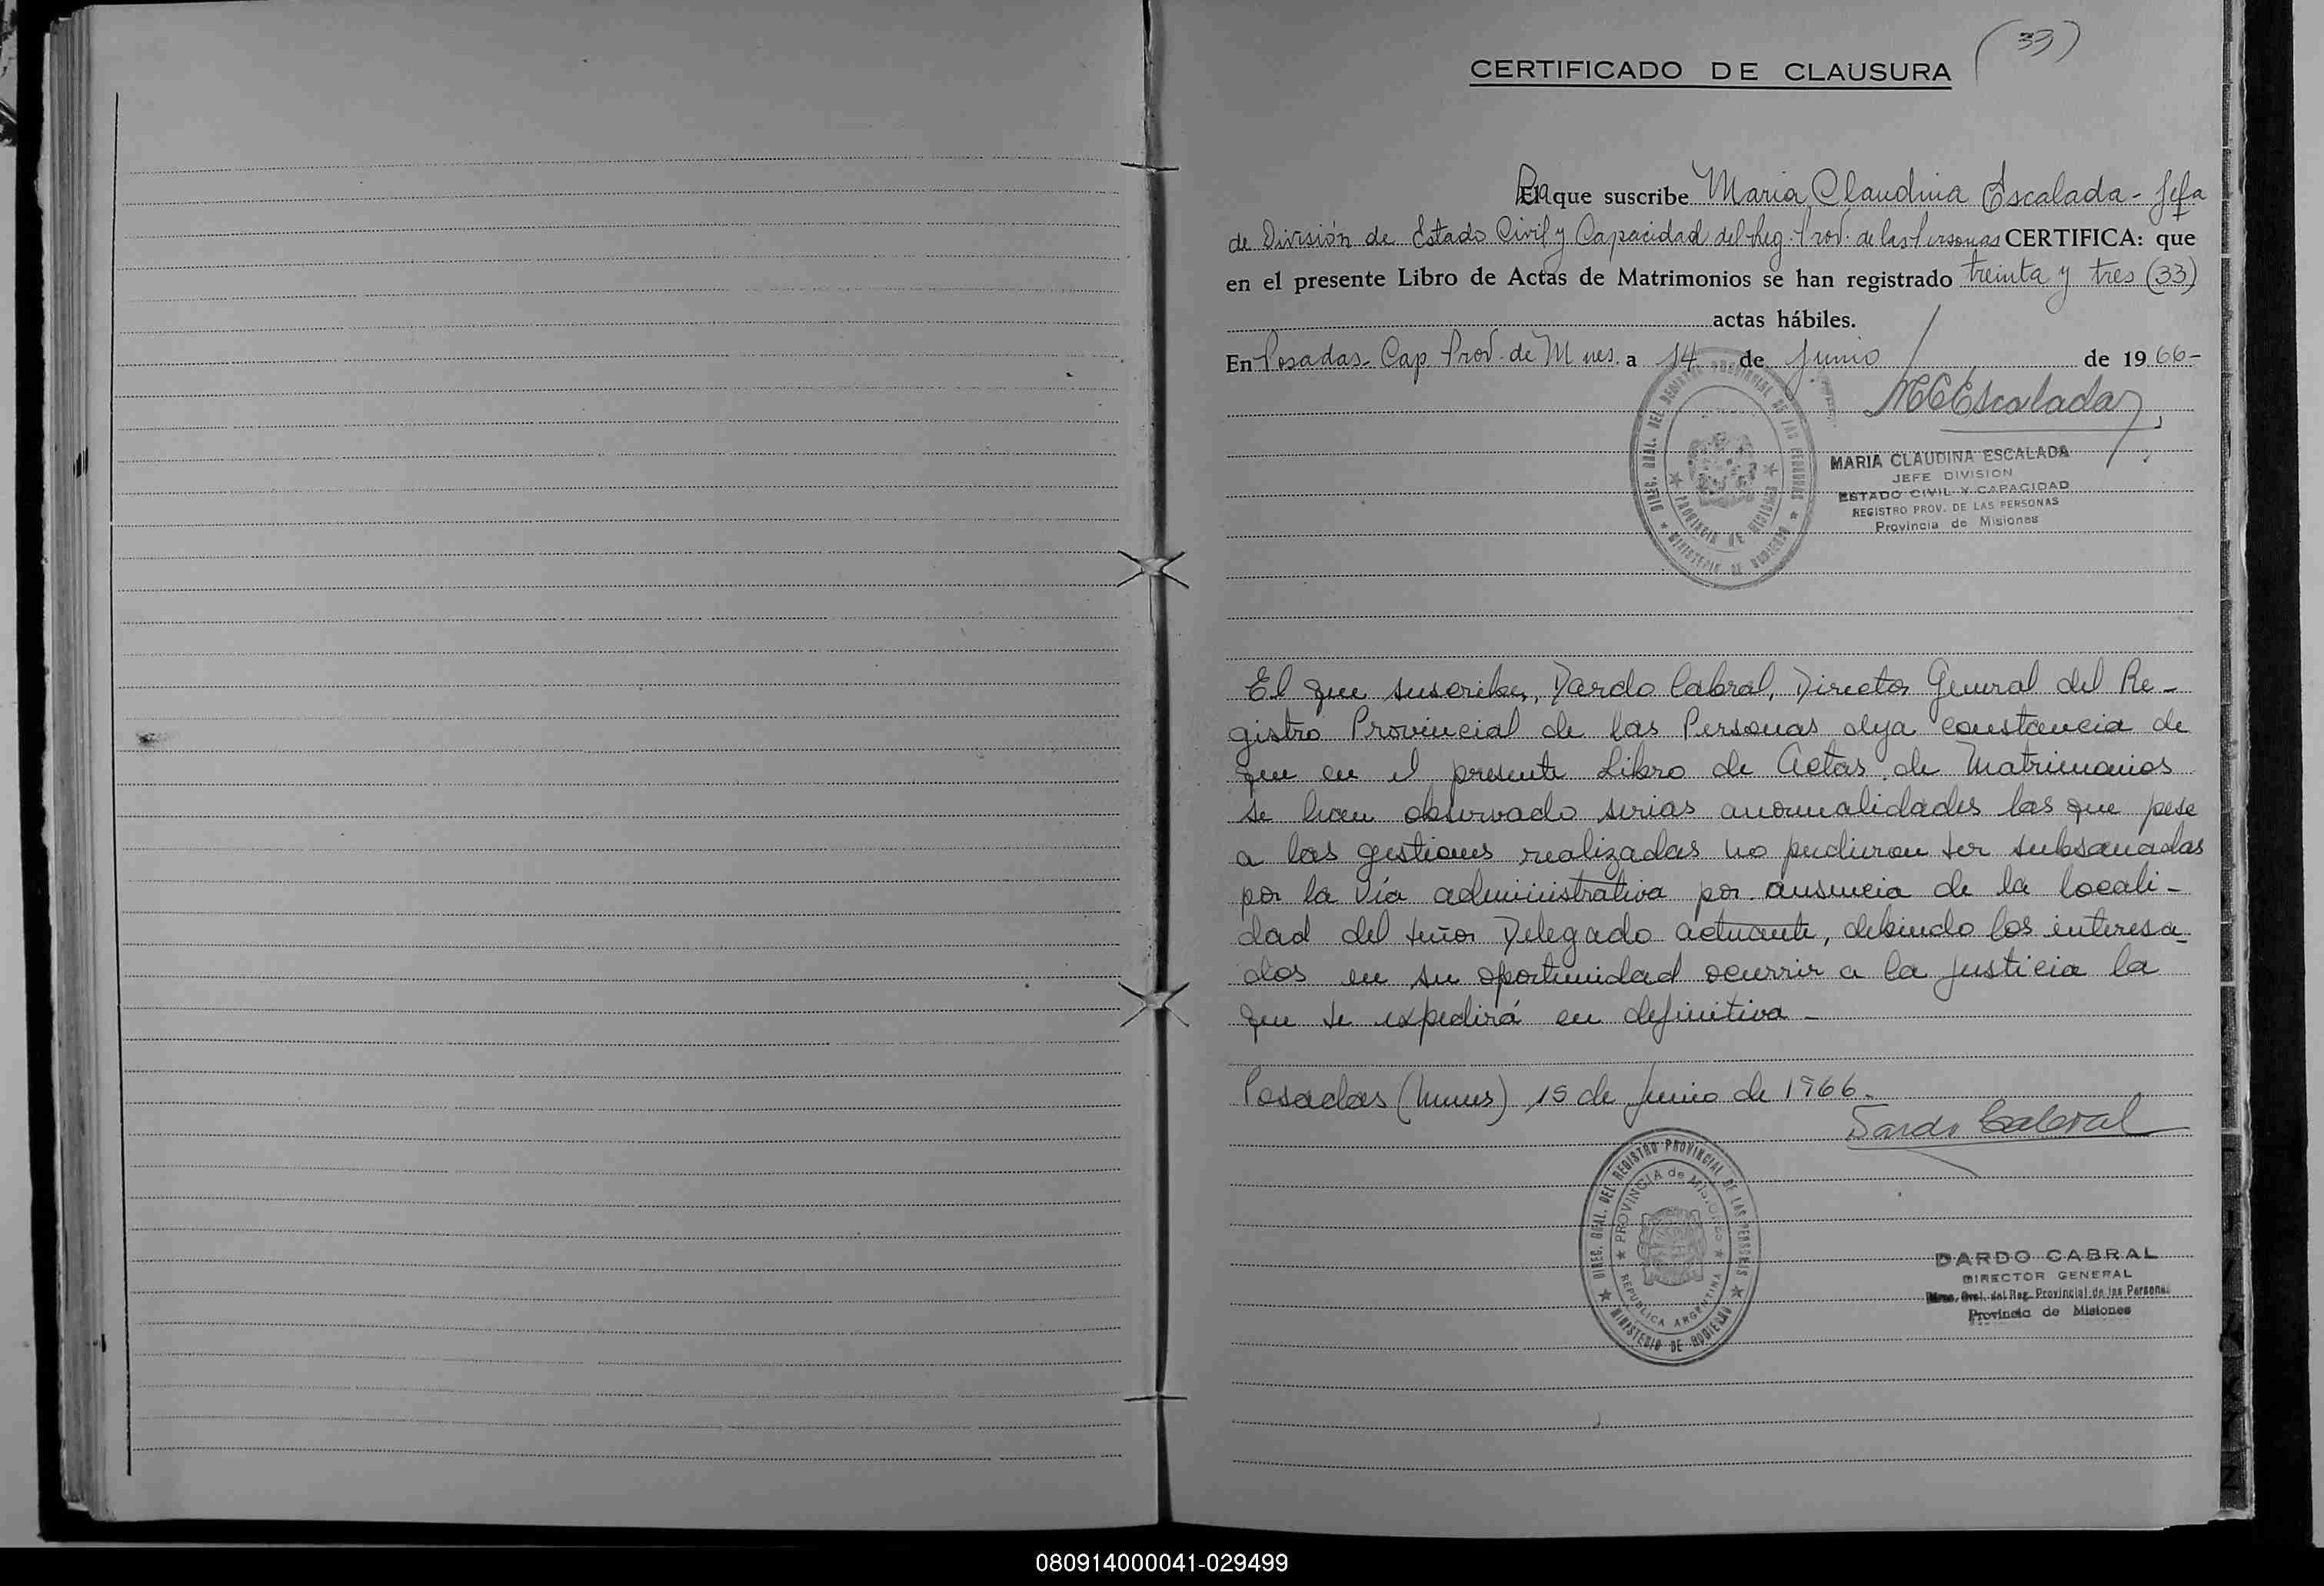 (33)
CERTIFICADO DE CLAUSURA
La que suscribe Maria Claudina Escalada - Jefa
de División de Estado Civil y Capacidad del Reg. Prov. de las Personas CERTIFICA: que
en el presente Libro de Actas de Matrimonios se han registrado treinta y tres (33)
actas hábiles.
En Posadas - Cap. Prov. de Mnes. a 14 de Junio de 1966-
MCEscalada
MARIA CLAUDINA ESCALADA
JEFE DIVISION
ESTADO CIVIL Y CAPACIDAD
REGISTRO PROV. DE LAS PERSONAS
Provincia de Misiones
DIREC. GRAL. DEL REGISTRO PROVINCIAL DE LAS PERSONAS
PROVINCIA DE MISIONES
MINISTERIO DE GOBIERNO
El que suscribe, Dardo Cabral, Director General del Re-
gistro Provincial de las Personas deja constancia de
que en el presente Libro de Actas de Matrimonios
se han observado serias anormalidades las que pese
a las gestiones realizadas no pudieron ser subsanadas
por la vía administrativa por ausencia de la locali-
dad del señor Delegado actuante, debiendo los interesa-
dos en su oportunidad ocurrir a la justicia la
que se expedirá en definitiva -
Posadas (Mnes) 15 de Junio de 1966.
Dardo Cabral
DIREC. GRAL. DEL REGISTRO PROVINCIAL DE LAS PERSONAS
PROVINCIA de MISIONES
REPUBLICA ARGENTINA
MINISTERIO DE GOBIERNO
DARDO CABRAL
DIRECTOR GENERAL
Direc. Gral. del Reg. Provincial de las Personas
Provincia de Misiones
080914000041-029499